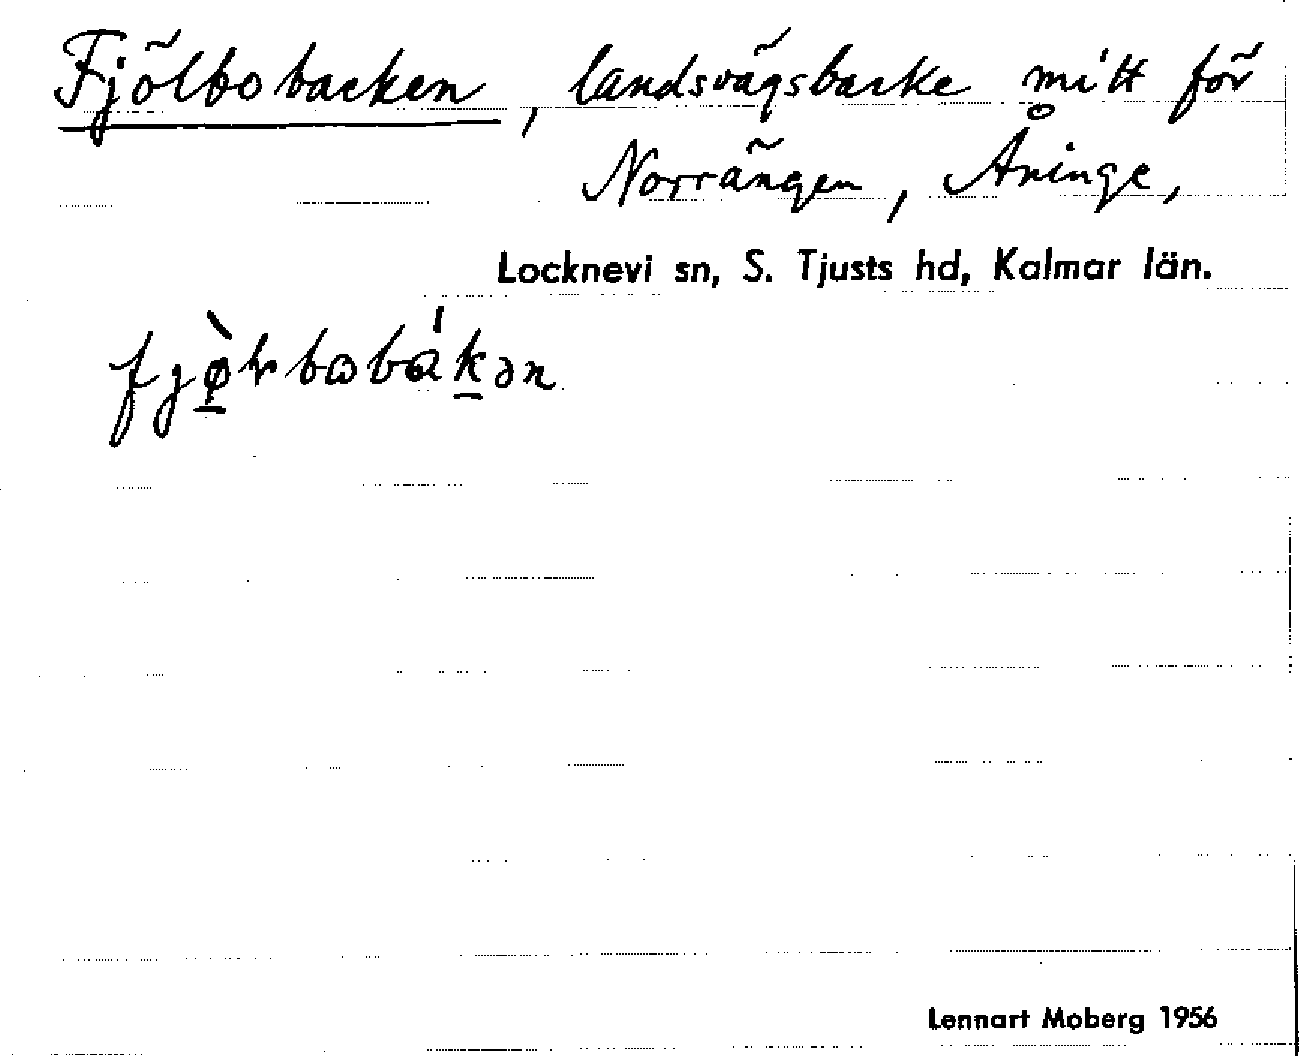 Fjölbobacken, landsvägsbacke mitt för
Norrängen, Åninge,
Locknevi sn, S. Tjusts hd, Kalmar län.
Lennart Moberg 1956